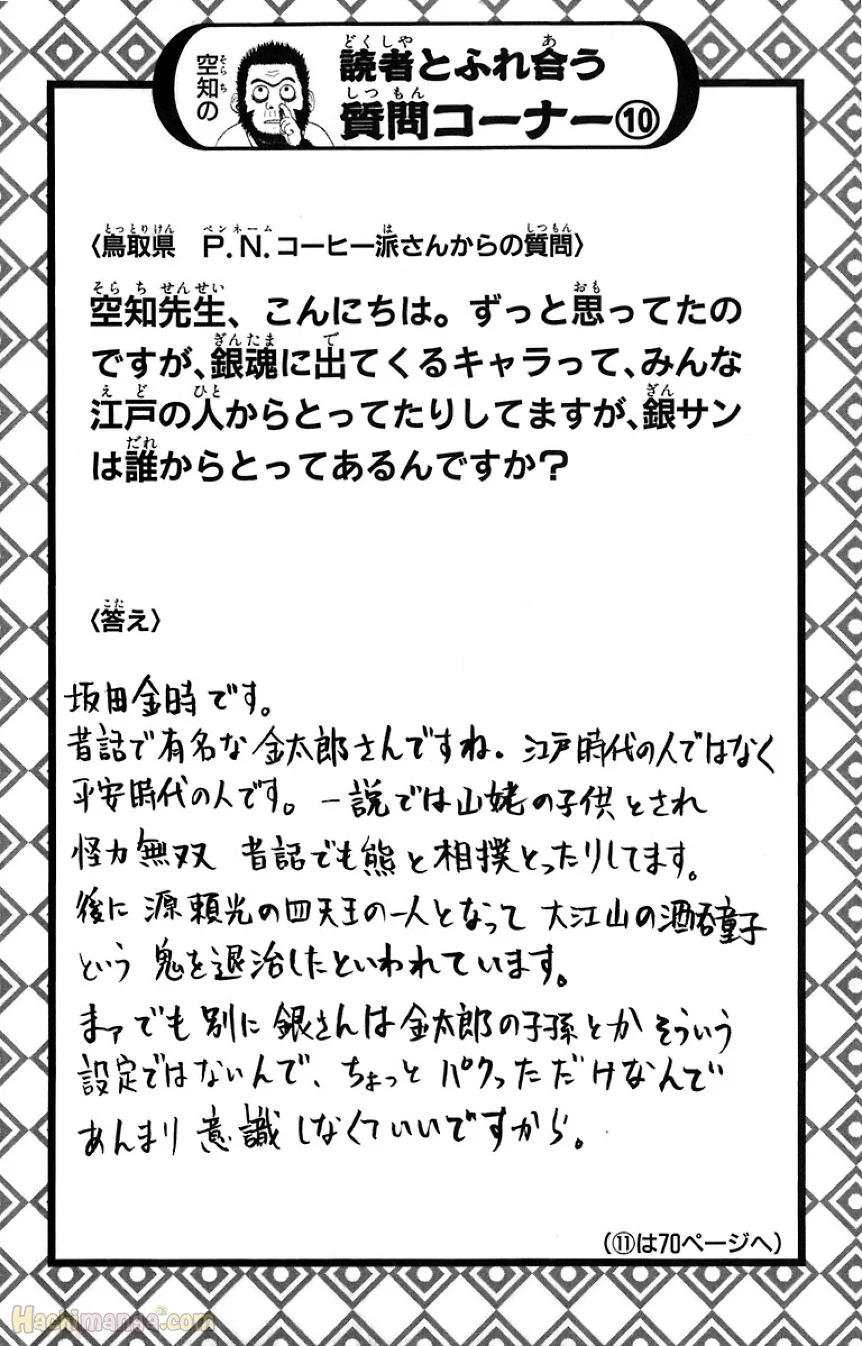 空知の
読者とふれ合う
質問コーナー⑩
〈鳥取県 P.N.コーヒー派さんからの質問〉
空知先生、こんにちは。ずっと思ってたの
ですが、銀魂に出てくるキャラって、みんな
江戸の人からとってたりしてますが、銀サン
は誰からとってあるんですか?
〈答え〉
坂田金時です。
昔話で有名な金太郎さんですね。江戸時代の人ではなく
平安時代の人です。一説では山姥の子供とされ
怪力無双 昔話でも熊と相撲とったりしてます。
後に源頼光の四天王の一人となって大江山の酒呑童子
という鬼を退治したといわれています。
まァでも別に銀さんは金太郎の子孫とかそういう
設定ではないんで、ちょっとパクっただけなんで
あんまり意識しなくていいですから。
(⑪は70ページへ)
Hachimanga.com